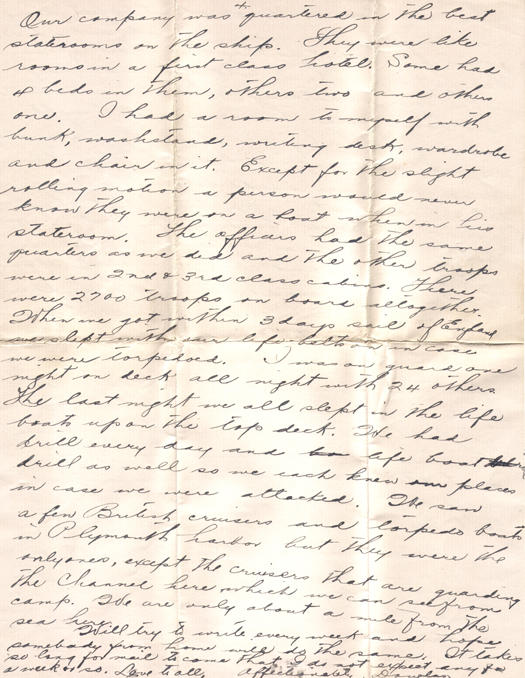 Our company was quartered in the best
staterooms on the ship. They were like
rooms in a first class hotel. Some had
4 beds in them, others two and others
one. I had a room to myself with
bunk, washstand, writing desk, wardrobe
and chair in it. Except for the slight
rolling motion a person would never
know they were on a boat when in his
stateroom. The officers had the same
quarters as we did and the other troops
were in 2nd & 3rd class cabins. There
were 2700 troops on board altogether.
When we got within 3 days sail of England
we slept with our life belts on in case
we were torpedoed. I was on guard one
night on deck all night with 24 others
The last night we all slept in the life
boats up on the top deck. We had
drill every day and life boat
drill as well so we each knew our places
in case we were attacked. We saw
a few British cruisers and torpedo boats
in Plymouth harbor but they were the
only ones, except the cruisers that are guarding
the Channel here which we can see from
camp. We are only about a mile from the
sea here.
Will try to write every week and hope
somebody from home will do the same. It takes
so long for mail to come that I do not expect any for
a week or so. Love to all, Affectionately,